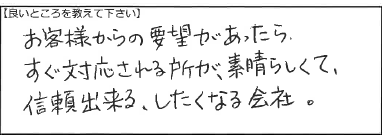 【良いところを教えて下さい】
お客様からの要望があったら、
すぐ対応される所が、素晴らしくて、
信頼出来る、したくなる会社。